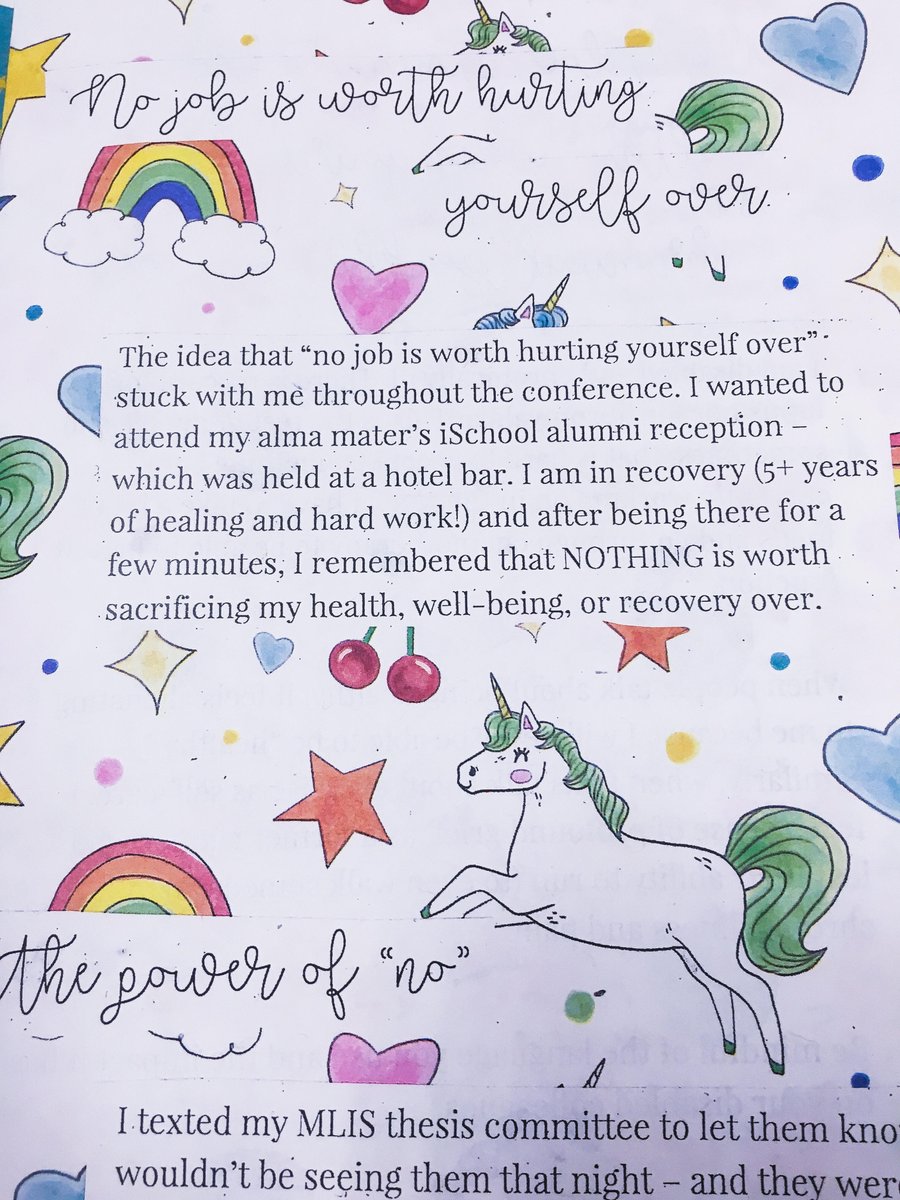 No job is worth hurting
yourself over
The idea that “no job is worth hurting yourself over”
stuck with me throughout the conference. I wanted to
attend my alma mater’s iSchool alumni reception –
which was held at a hotel bar. I am in recovery (5+ years
of healing and hard work!) and after being there for a
few minutes, I remembered that NOTHING is worth
sacrificing my health, well-being, or recovery over.
the power of “no”
I texted my MLIS thesis committee to let them kno
wouldn’t be seeing them that night – and they were